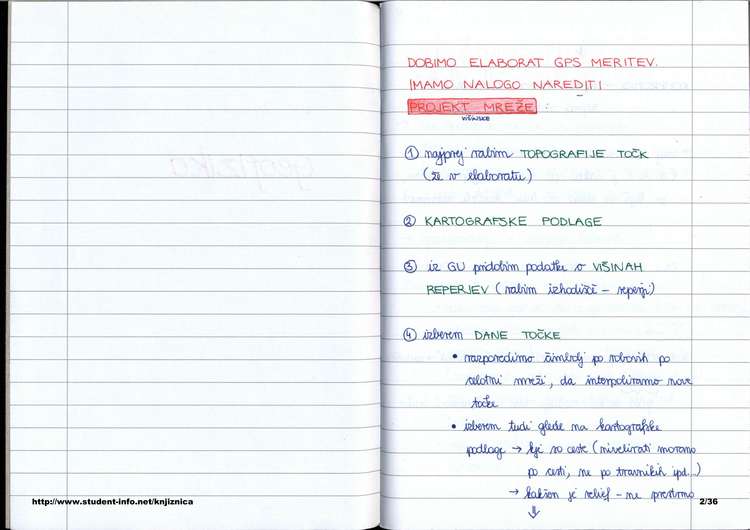 geofizika
DOBIMO ELABORAT GPS MERITEV.
IMAMO NALOGO NAREDITI
PROJEKT MREŽE :
VIŠINSKE
① najprej rabim TOPOGRAFIJE TOČK
(že v elaboratu)
② KARTOGRAFSKE PODLAGE
③ iz GU pridobim podatke o VIŠINAH
REPERJEV (rabim izhodišč – reperji)
④ izberem DANE TOČKE
• razporedimo čimbolj po robovih po
celotni mreži, da interpoliramo nove
točke
• izberem tudi glede na kartografske
podlage → kje so ceste (nivelirati moramo
po cesti, ne po travnikih ipd...)
→ kakšen je relief – ne prestrmo
http://www.student-info.net/knjiznica
2/36